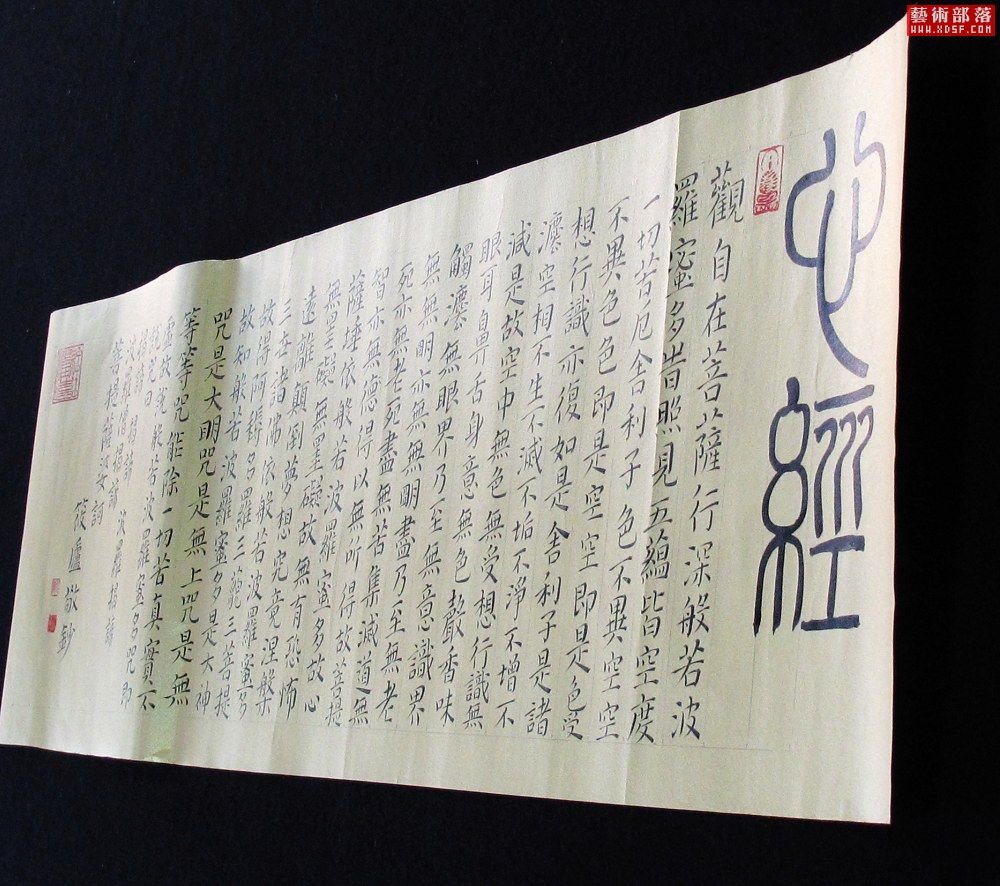 藝術部落
WWW.XDSF.COM
心經
觀自在菩薩行深般若波
羅蜜多時照見五蘊皆空度
一切苦厄舍利子色不異空空
不異色色即是空空即是色受
想行識亦復如是舍利子是諸
灋空相不生不滅不垢不淨不增不
減是故空中無色無受想行識無
眼耳鼻舌身意無色聲香味
觸灋無眼界乃至無意識界
無無明亦無無明盡乃至無老
死亦無老死盡無苦集滅道無
智亦無德得以無所得故菩提
薩埵依般若波羅蜜多故心
無罣礙無罣礙故無有恐怖
遠離顛倒夢想究竟涅槃
三世諸佛依般若波羅蜜多
故得阿耨多羅三藐三菩提
故知般若波羅蜜多是大神
咒是大明咒是無上咒是無
等等咒能除一切苦真實不
虛故說般若波羅蜜多咒即
說咒曰
揭諦揭諦波羅揭諦
波羅僧揭諦
菩提薩婆訶
筱廬敬鈔